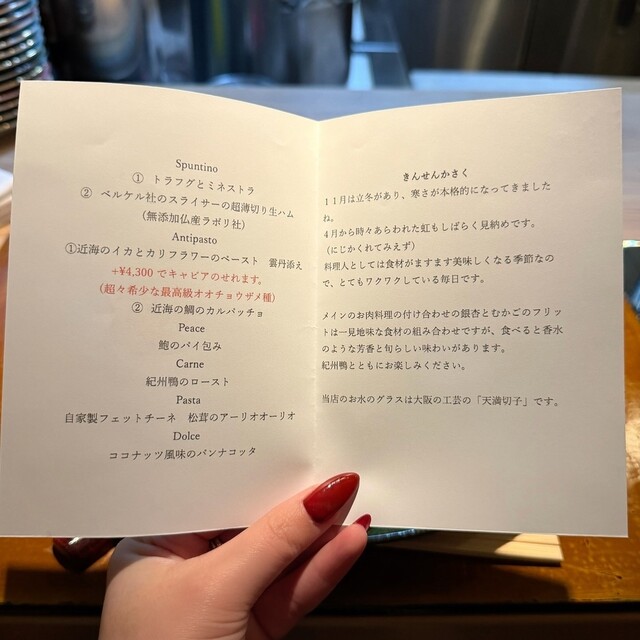 Spuntino
① トラフグとミネストラ
② ベルケル社のスライサーの超薄切り生ハム
(無添加仏産ラボリ社)
Antipasto
①近海のイカとカリフラワーのペースト 雲丹添え
+¥4,300 でキャビアのせれます。
(超々希少な最高級オオチョウザメ種)
② 近海の鯛のカルパッチョ
Peace
鮑のパイ包み
Carne
紀州鴨のロースト
Pasta
自家製フェットチーネ 松茸のアーリオオーリオ
Dolce
ココナッツ風味のパンナコッタ
きんせんかさく
11月は立冬があり、寒さが本格的になってきました
ね。
4月から時々あらわれた虹もしばらく見納めです。
(にじかくれてみえず)
料理人としては食材がますます美味しくなる季節なの
で、とてもワクワクしている毎日です。
メインのお肉料理の付け合わせの銀杏とむかごのフリッ
トは一見地味な食材の組み合わせですが、食べると香水
のような芳香と旬らしい味わいがあります。
紀州鴨とともにお楽しみください。
当店のお水のグラスは大阪の工芸の「天満切子」です。